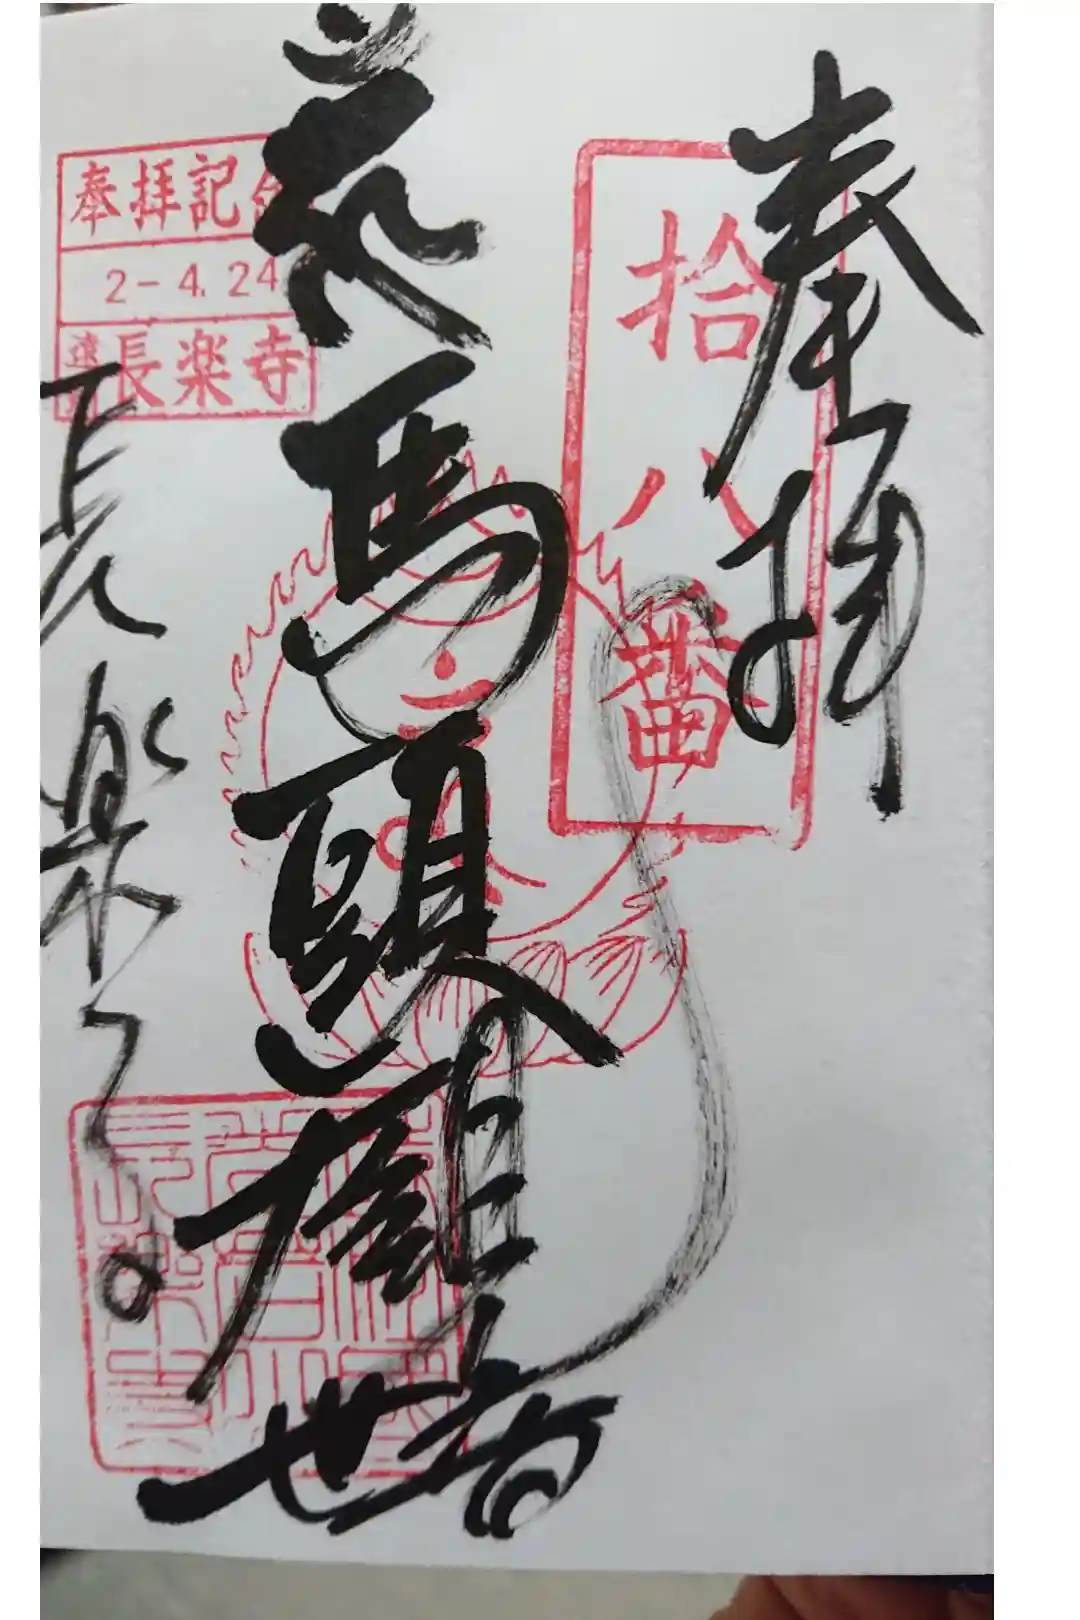 奉拝
拾八番
馬頭観世音
奉拝記念
2-4.24
遠州長楽寺
長楽寺